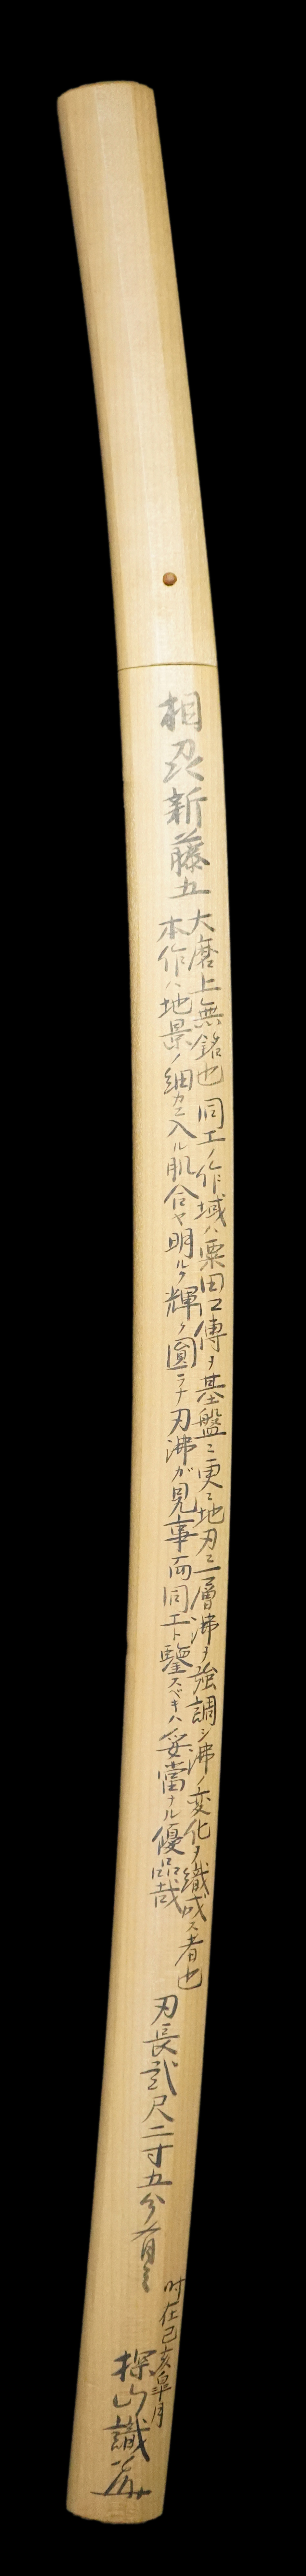 相州新藤五
大磨上無銘也同工ノ作域ハ粟田口傳ヲ基盤ニ更ニ地刃ニ一層沸ヲ強調シ沸ノ変化ヲ織成ス者也
本作ハ地景ノ細カニ入ル肌合ヤ明ルク輝ク圓ラナ刃沸が見事而同工ト鑒スベキハ妥當ナル優品哉
刃長貮尺二寸五分有之
時在己亥皐月
探山識